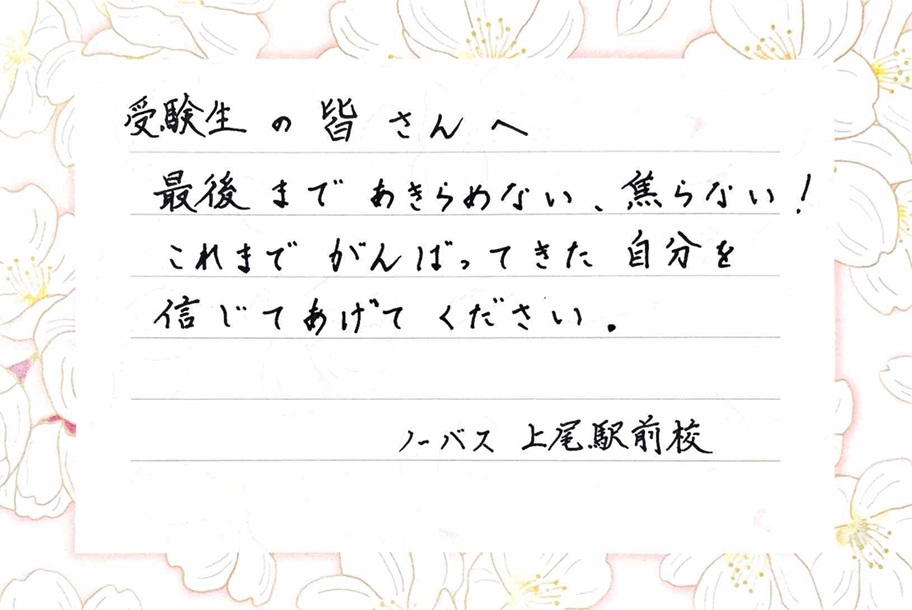 受験生の皆さんへ
最後まであきらめない、焦らない!
これまでがんばってきた自分を
信じてあげてください。
ノーバス 上尾駅前校